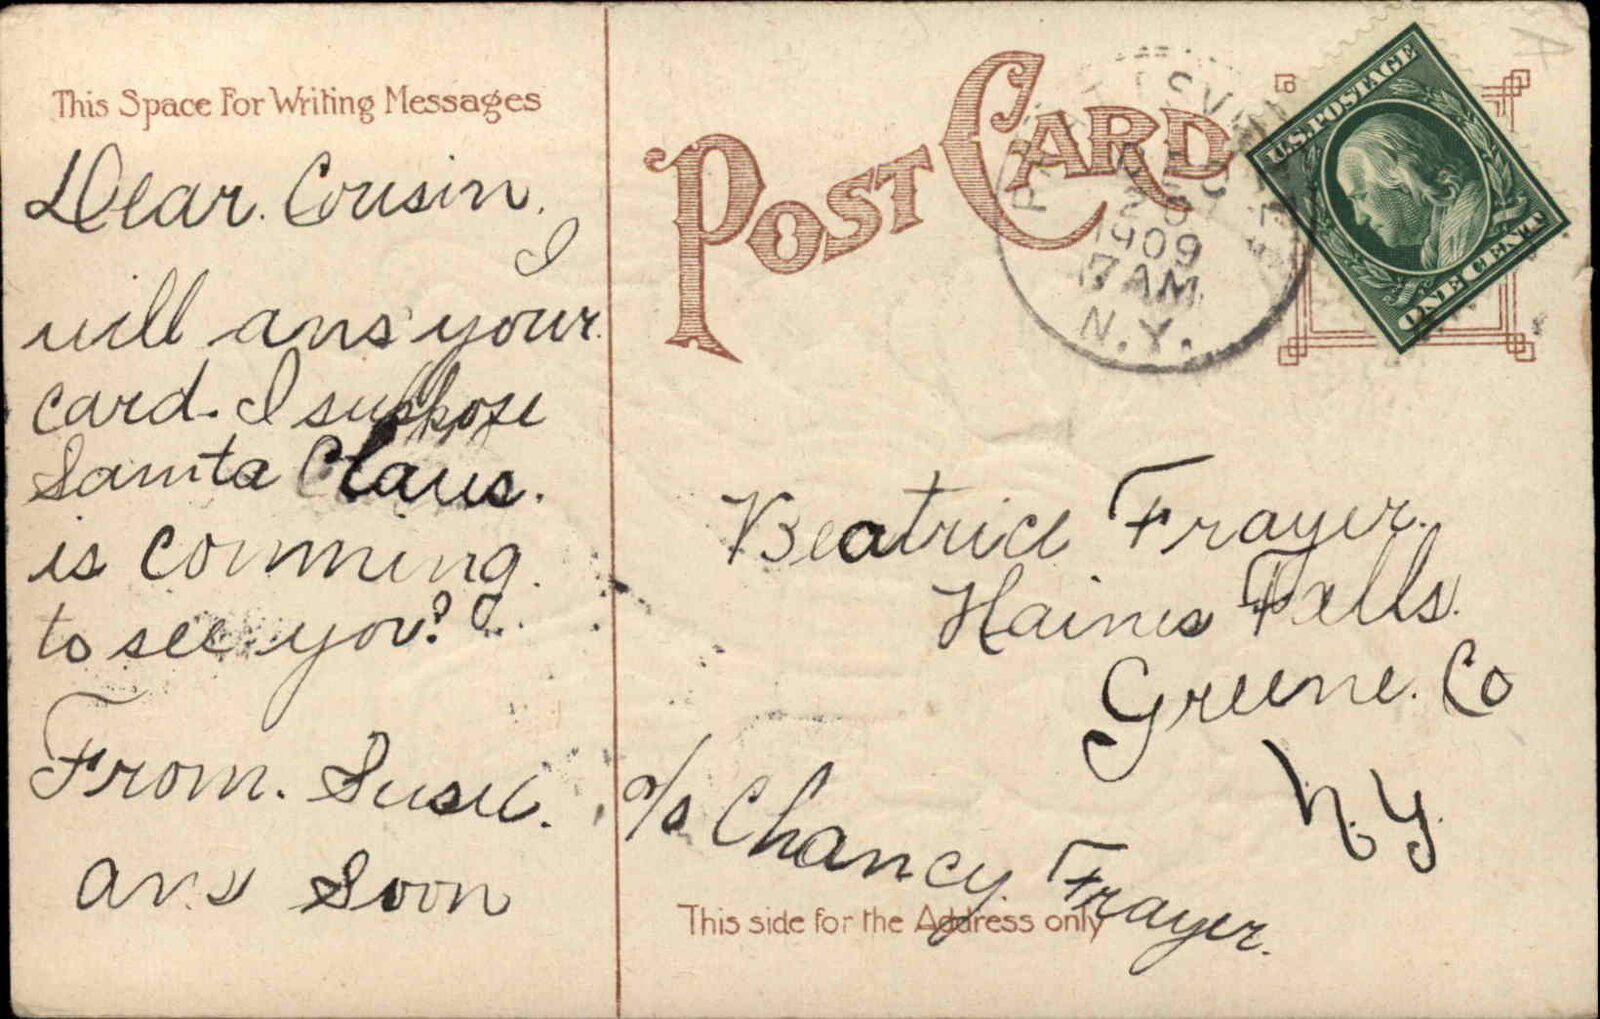 This Space For Writing Messages
Dear. Cousin.
I
will ans your
card. I suppose
Santa Claus.
is comming.
to see you?
From. Susie.
ans Soon
POST CARD
PRATTSVILLE
1909
7 AM
N.Y.
U.S. POSTAGE
ONE CENT
Beatrice Frayer.
Haines Falls.
Greene. Co
N.Y.
c/o Chancy Frayer.
This side for the Address only